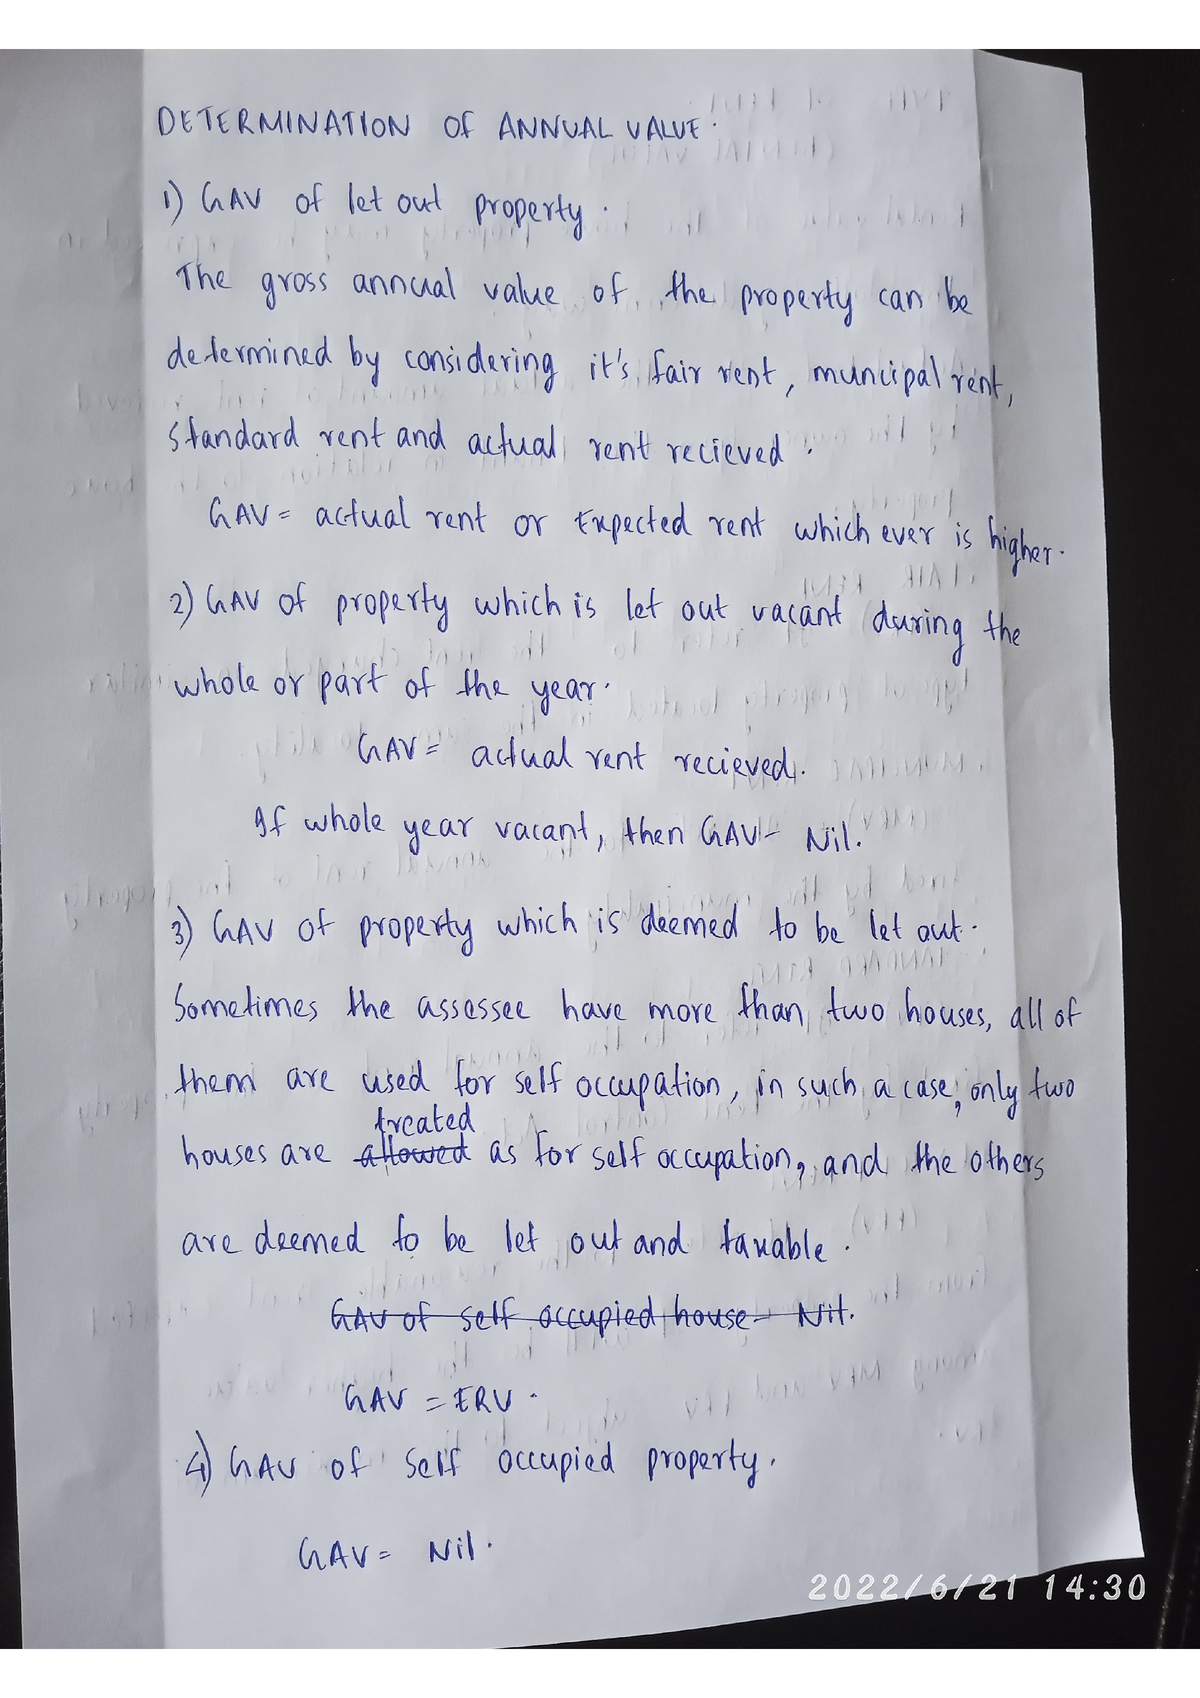 DETERMINATION OF ANNUAL VALUE.
1) GAV of let out property.
The gross annual value of the property can be
determined by considering it's fair rent, muncipal rent,
standard rent and actual rent recieved.
GAV = actual rent or Expected rent which ever is higher.
2) GAV of property which is let out vacant during the
whole or part of the year.
GAV = actual rent recieved.
If whole year vacant, then GAV - Nil.
3) GAV of property which is deemed to be let out.
Sometimes the assessee have more than two houses, all of
them are used for self occupation, in such a case, only two
treated
houses are allowed as for self occupation, and the others
are deemed to be let out and taxable.
GAV of self occupied house - Nil.
GAV = ERV.
4) GAV of self occupied property.
GAV = Nil.
2022/6/21 14:30